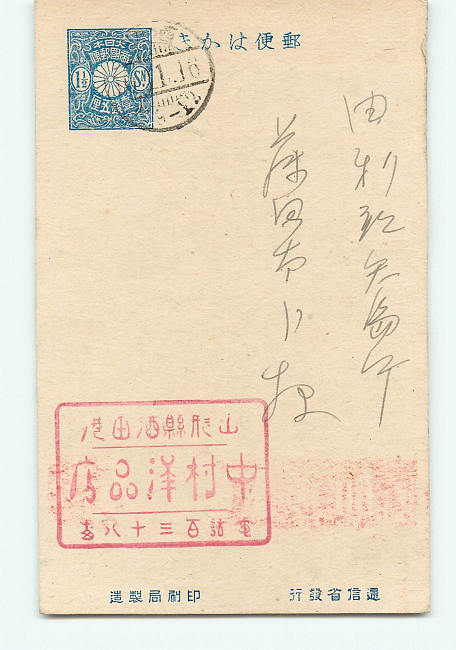 郵便はかき
大日本
帝國郵便
1½ Sn
壹錢五厘
1.16
由利郡矢島町
田
様
山形縣酒田港
中村洋品店
電話百三十八番
遞信省發行
印刷局製造